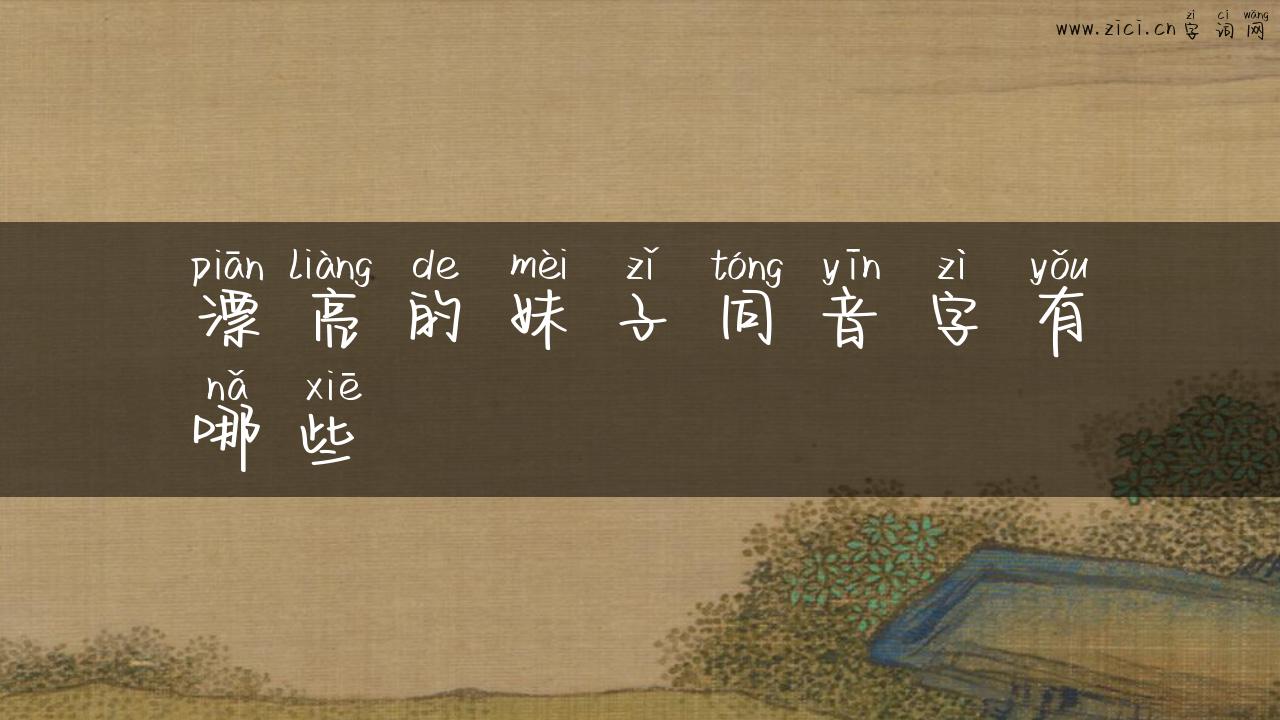 zì cí wǎng
www.zici.cn 字 词 网
piān liàng de mèi zǐ tóng yīn zì yǒu
漂 亮 的 妹 子 同 音 字 有
nǎ xiē
哪 些